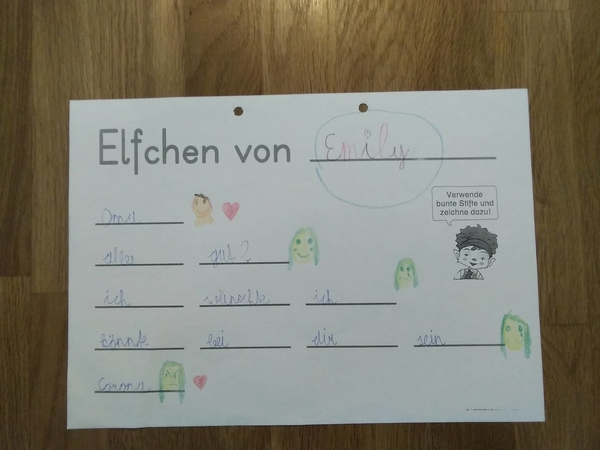 Elfchen von Emily
Verwende
bunte Stifte und
zeichne dazu!
Oma
alles gut?
ich wünschte ich
könnte bei dir sein
Corona